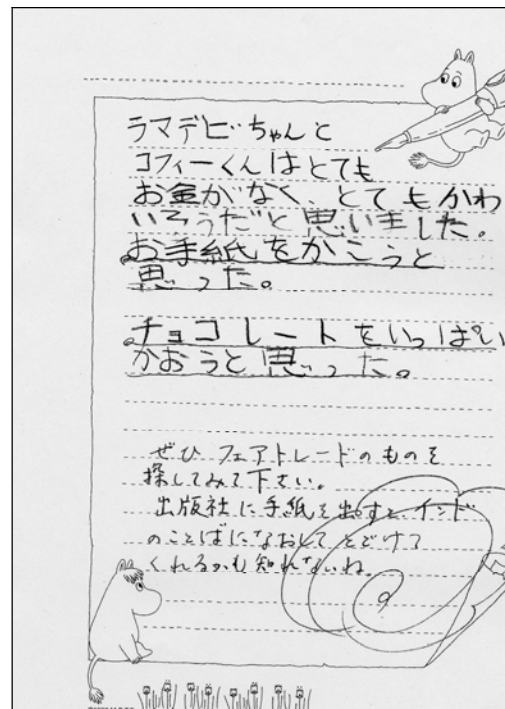 ラマデビちゃんと
コフィーくんはとても
お金がなく、とてもかわ
いそうだと思いました。
お手紙をかこうと
思った。
チョコレートをいっぱい
かおうと思った。
ぜひ フェアトレードのものを
探してみて下さい。
出版社に手紙を出すと、インド
のことばになおして とどけて
くれるかも知れないね。